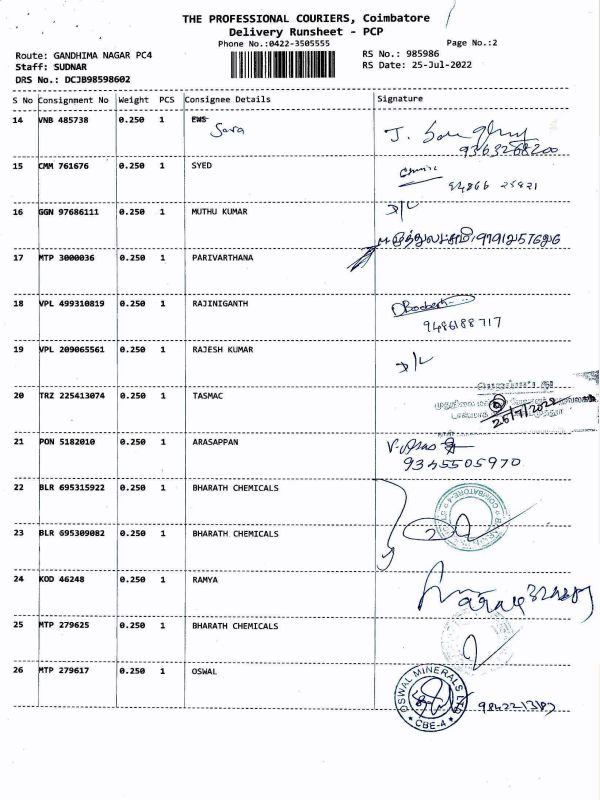 THE PROFESSIONAL COURIERS, Coimbatore
Delivery Runsheet - PCP
Phone No.:0422-3505555
Page No.:2
Route: GANDHIMA NAGAR PC4
RS No.: 985986
Staff: SUDNAR
RS Date: 25-Jul-2022
DRS No.: DCJB98598602
S No Consignment No Weight PCS Consignee Details Signature
14 VNB 485738 0.250 1 EWS
Sara
9363268200
15 CMM 761676 0.250 1 SYED
16 GGN 97686111 0.250 1 MUTHU KUMAR
17 MTP 3000036 0.250 1 PARIVARTHANA
18 VPL 499310819 0.250 1 RAJINIGANTH
9486188717
19 VPL 209065561 0.250 1 RAJESH KUMAR
20 TRZ 225413074 0.250 1 TASMAC
26/7/2022
21 PON 5182010 0.250 1 ARASAPPAN
9345505970
22 BLR 695315922 0.250 1 BHARATH CHEMICALS
23 BLR 695309082 0.250 1 BHARATH CHEMICALS
24 KOD 46248 0.250 1 RAMYA
25 MTP 279625 0.250 1 BHARATH CHEMICALS
26 MTP 279617 0.250 1 OSWAL
OSWAL MINERALS LTD
CBE-4